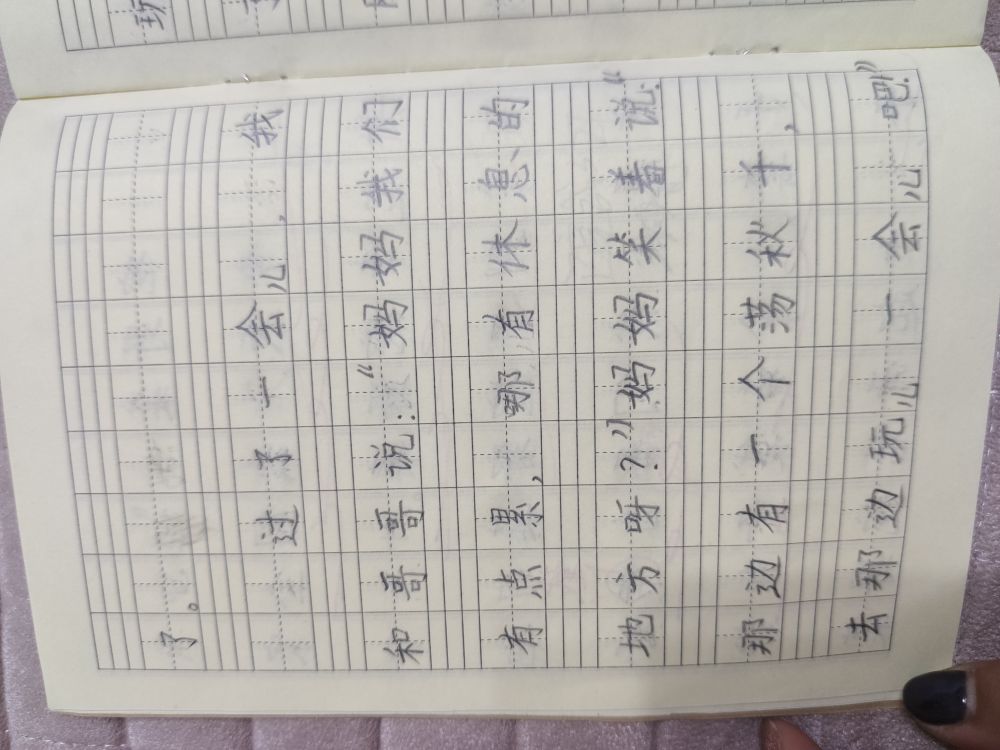 玩
了。
过了一会儿,我
和哥哥说:“妈妈我们
有点累,哪有休息、的
地方呀?”妈妈笑着说:“
那边有一个荡秋千,
去那边玩儿一会儿吧!”